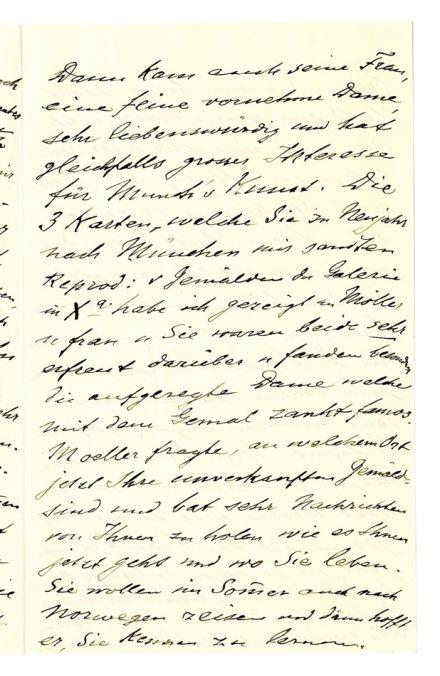 Dann kam auch seine Frau,
eine feine vornehme Dame,
sehr liebenswürdig und hat
gleichfalls grosses Interesse
für Munch's Kunst. Die
3 Karten, welche Sie zu Neujahr
nach München mir sandten
Reprod: v Gemälden der Galerie
in X a habe ich gezeigt an Möller
u frau u Sie waren beide sehr
erfreut darüber u fanden besonders
die aufgeregte Dame welche
mit dem Gemal zankt famos.
Moeller fragte, an welchem Ort
jetzt Ihre unverkauften Gemälde
sind und bat sehr Nachrichten
von Ihnen zu holen wie es Ihnen
jetzt geht und wo Sie leben.
Sie wollen im Somer auch nach
Norwegen reisen und dann hofft
er, Sie kennen zu lernen.